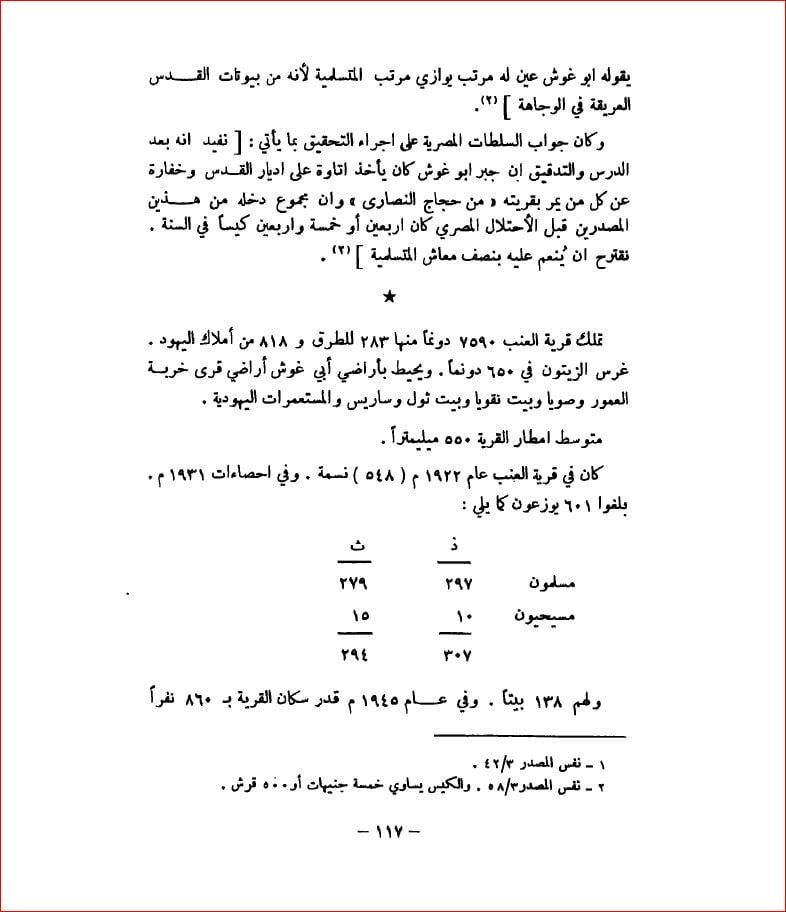 يقوله ابو غوش عين له مرتب يوازي مرتب المتسلمية لأنه من بيوتات القدس
العريقة في الوجاهة ] (٢).
وكان جواب السلطات المصرية على اجراء التحقيق بما يأتي : [ نفيد انه بعد
الدرس والتدقيق ان جبر ابو غوش كان يأخذ اتاوة على اديار القدس وخفارة
عن كل من يمر بقريته « من حجاج النصارى » وان مجموع دخله من هذين
المصدرين قبل الأحتلال المصري كان اربعين أو خمسة واربعين كيساً في السنة .
نقترح ان يُنعم عليه بنصف معاش المتسلمية ] (٢) .
★
تملك قرية العنب ٧٥٩٠ دونماً منها ٢٨٣ للطرق و ٨١٨ من أملاك اليهود .
غرس الزيتون في ٦٥٠ دونماً . ويحيط بأراضي أبي غوش أراضي قرى خربة
العمور وصوبا وبيت نقوبا وبيت ثول وساريس والمستعمرات اليهودية .
متوسط امطار القرية ٥٥٠ ميليمتراً .
كان في قرية العنب عام ١٩٢٢ م ( ٥٤٨ ) نسمة . وفي احصاءات ١٩٣١ م .
بلغوا ٦٠١ يوزعون كما يلي :
ذ ث
مسلمون ٢٩٧ ٢٧٩
مسيحيون ١٠ ١٥
٣٠٧ ٢٩٤
ولهم ١٣٨ بيتاً . وفي عام ١٩٤٥ م قدر سكان القرية بـ ٨٦٠ نفراً
١ - نفس المصدر ٤٢/٣ .
٢ - نفس المصدر ٥٨/٣ . والكيس يساوي خمسة جنيهات أو ٥٠٠ قرش .
- ١١٧ -